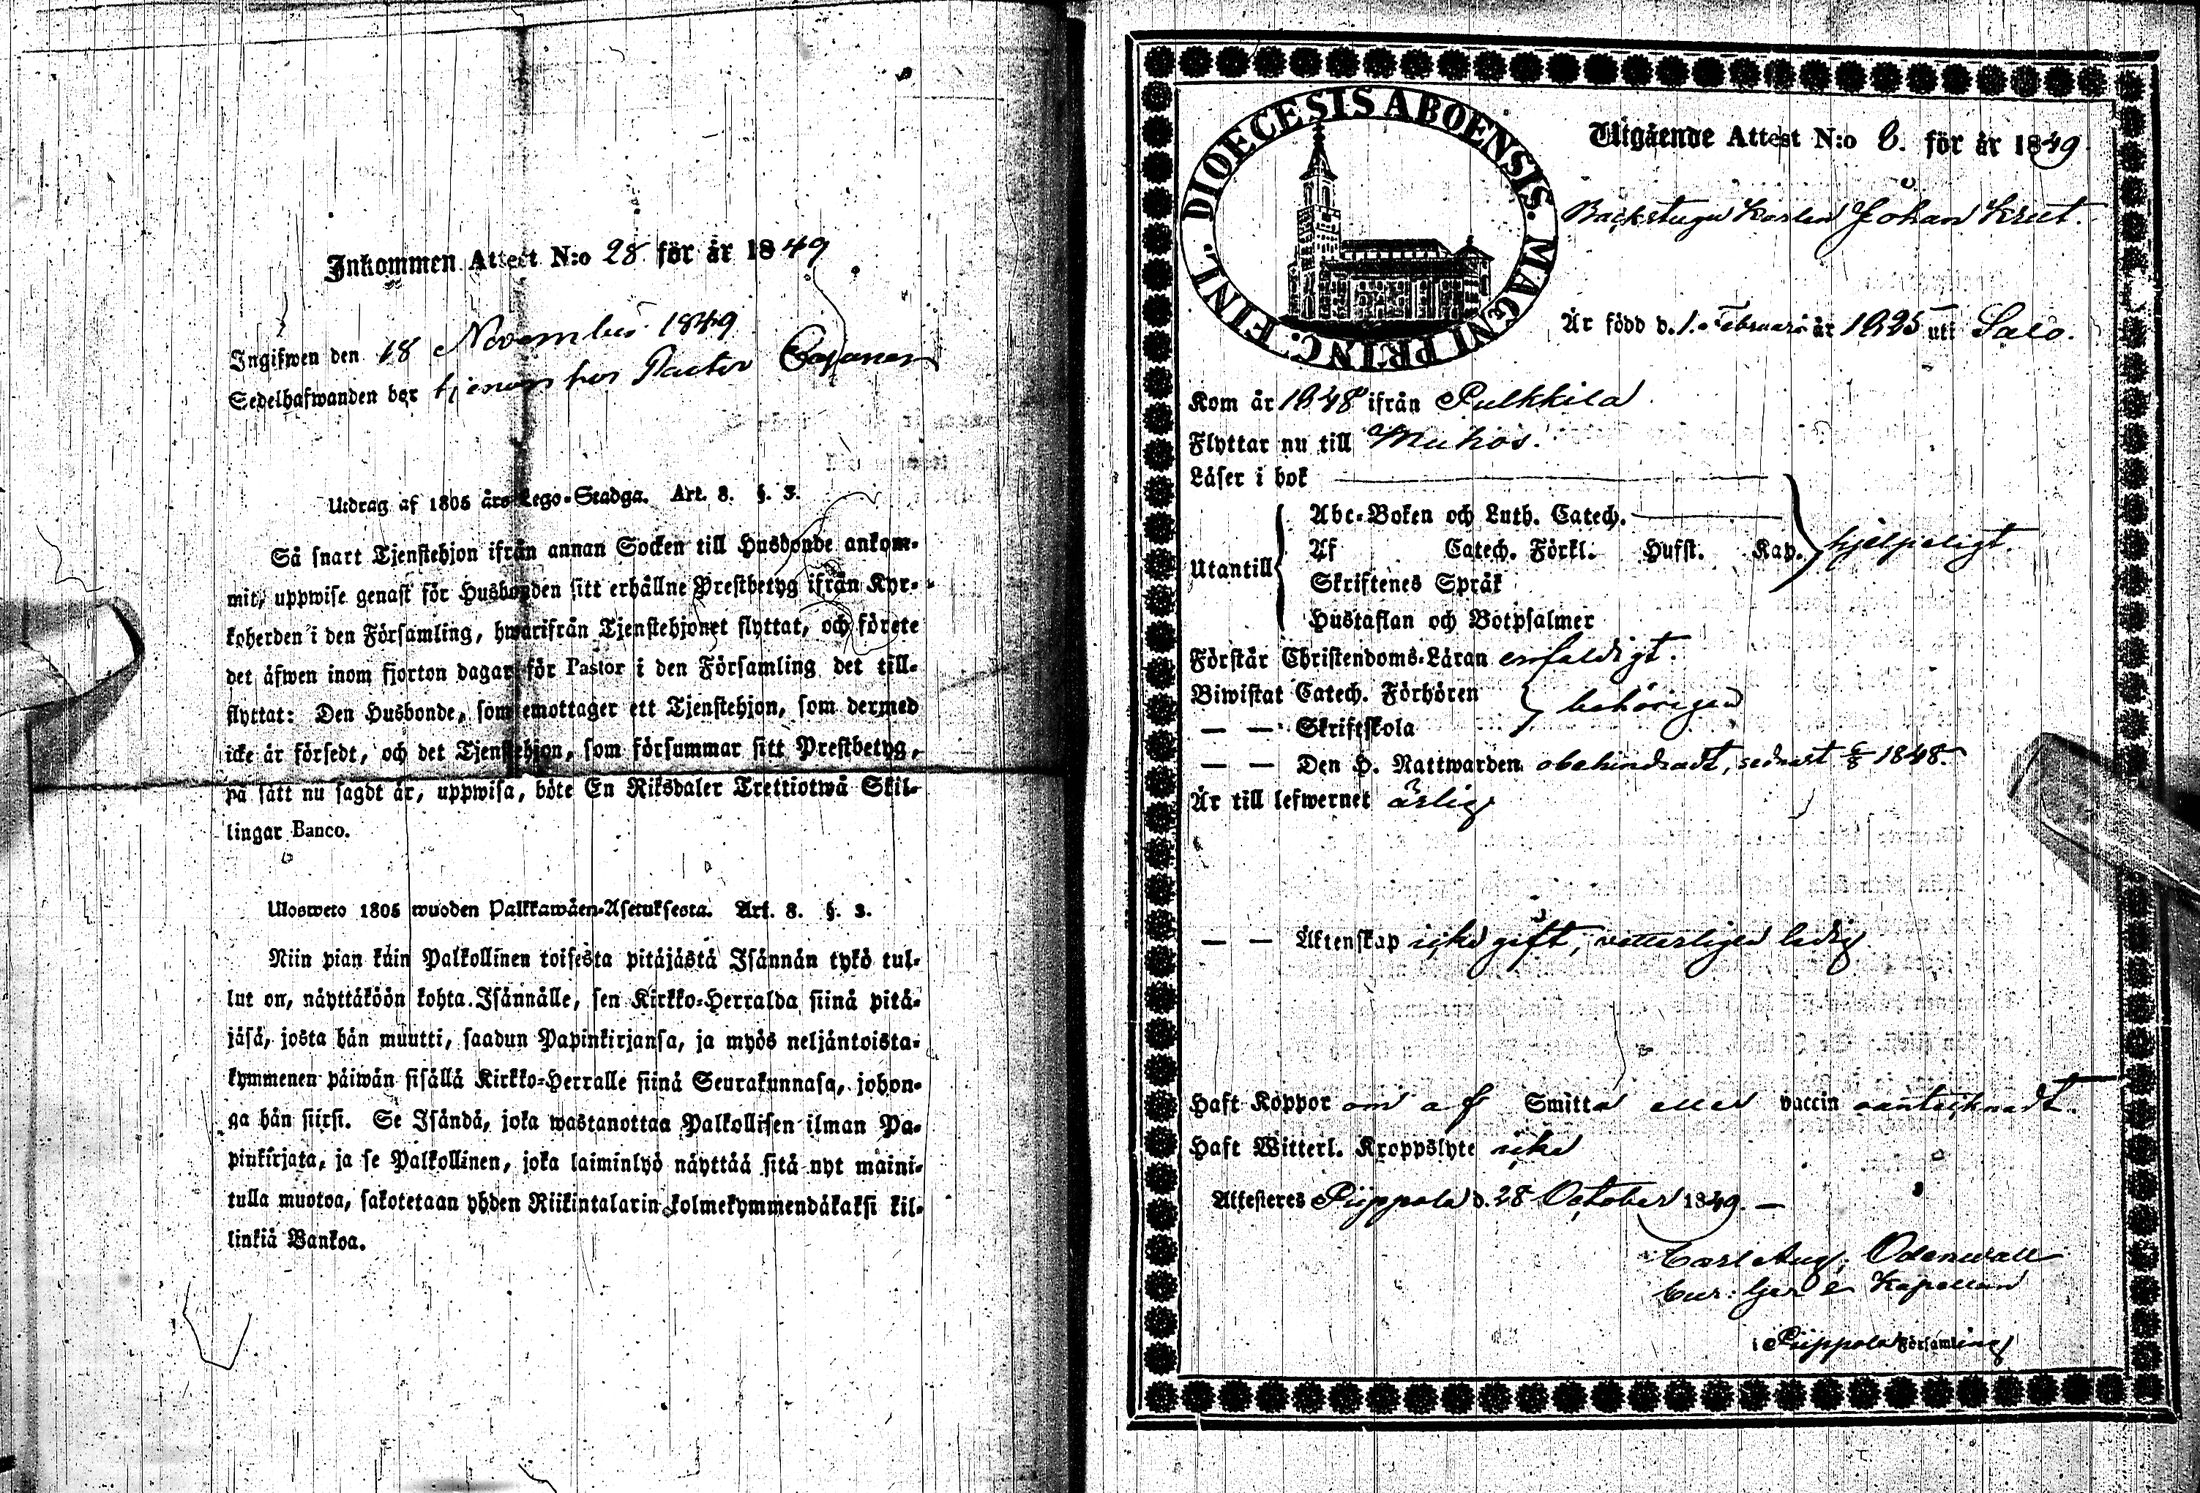 Inkommen Attest N:o 28 för år 1849
Ingifwen den 18 November 1849
Sedelhafwanden bor tjenar hos Pastor Cajanen
Utdrag af 1805 års Lego-Stadga. Art. 8. §. 3.
Så snart Tjenstehjon ifrån annan Socken till Husbonde ankom-
mit, uppwise genast för Husbonden sitt erhållne Prestbetyg ifrån Kyr-
koherden i den Församling, hwarifrån Tjenstehjonet flyttat, och förete
det äfwen inom fjorton dagar för Pastor i den Församling det till-
flyttat: Den Husbonde, som emottager ett Tjenstehjon, som dermed
icke är försedt, och det Tjenstehjon, som försummar sitt Prestbetyg,
på sätt nu sagdt är, uppwisa, böte En Riksdaler Trettiotwå Skil-
lingar Banco.
Ulosweto 1805 wuoden Palkkawäen-Asetuksesta. Art. 8. §. 3.
Niin pian kuin Palkollinen toisesta pitäjästä Isännän tykö tul-
lut on, näyttäköön kohta Isännälle, sen Kirkko-Herralda siinä pitä-
jäsä, josta hän muutti, saadun Papinkirjansa, ja myös neljäntoista-
kymmenen päiwän sisällä Kirkko-Herralle siinä Seurakunnasa, johon-
ga hän siirsi. Se Isändä, joka wastanottaa Palkollisen ilman Pa-
pinkirjata, ja se Palkollinen, joka laiminlyö näyttää sitä nyt maini-
tulla muotoa, sakotetaan yhden Riikintalarin kolmekymmendäkaksi kil-
linkiä Bankoa.
DIOECESIS ABOENSIS. MAGNI PRINC. FINL.
Utgående Attest N:o 8. för år 1849
Backstugu Karlen Johan Kreet.
Är född d. 1. Februari år 1825 uti Salo.
Kom år 1848 ifrån Pulkkila
Flyttar nu till Muhos.
Läser i bok
Utantill
Abc-Boken och Luth. Catech.
Af Catech. Förkl. Hufst. Kap. hjelpeligt.
Skriftenes Språk
Hustaflan och Botpsalmer
Förstår Christendoms-Läran enfaldigt.
Biwistat Catech. Förhören behörigen
— — Skriftskola
— — Den H. Nattwarden obehindradt, sednast 1848.
Är till lefwernet ärlig
— — Äktenskap icke gift, vetterligen ledig
Haft Koppor om af Smitta eller vaccin oantecknadt.
Haft Witterl. Kroppslyte icke
Attesteres Piippola d. 28 October 1849. —
Carl Aug. Odenwall
Cur: Ger & Kapellan
i Piippola Församling